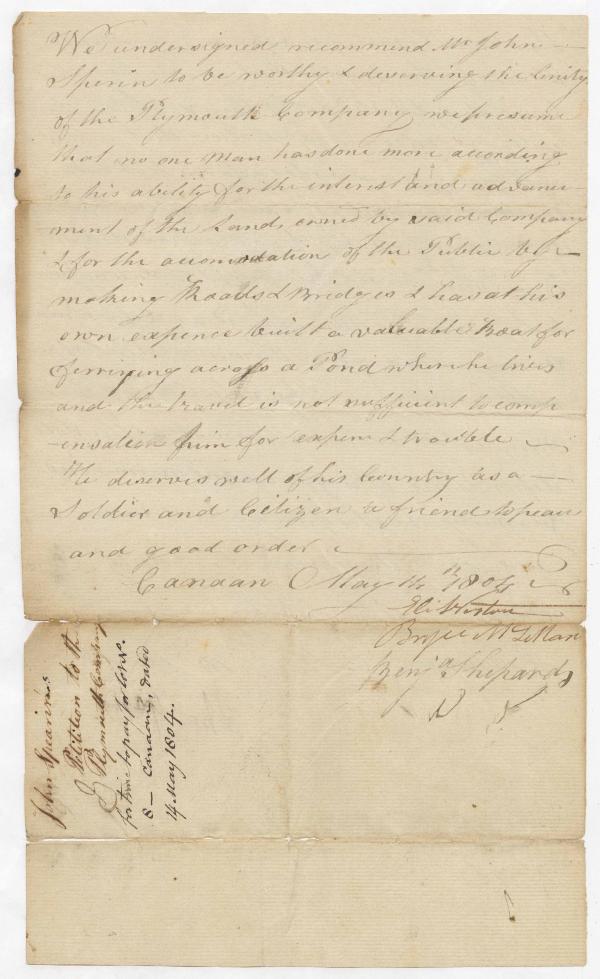 We undersigned recommend Mr John
Sperin to be worthy & deserving the linity
of the Plymouth Company we presume
that no one man has done more according
to his ability for the interest and advance
ment of the Land, owned by said Company
& for the accomodation of the Public by
making Roads & Bridges & has at his
own expence built a valuable Boat for
ferrying across a Pond where he lives
and the travel is not sufficient to comp
ensation him for expence & trouble
He deserves well of his Country as a
Soldier and Citizen a friend to peace
and good order
Canaan May 14th 1804
Eli Weston
Bryce McLellan
Benja Shepard
John Spearin's
Petition to the
Plymouth Company
for time to pay for lot No.
8 — Canaan, dated
14 May 1804.